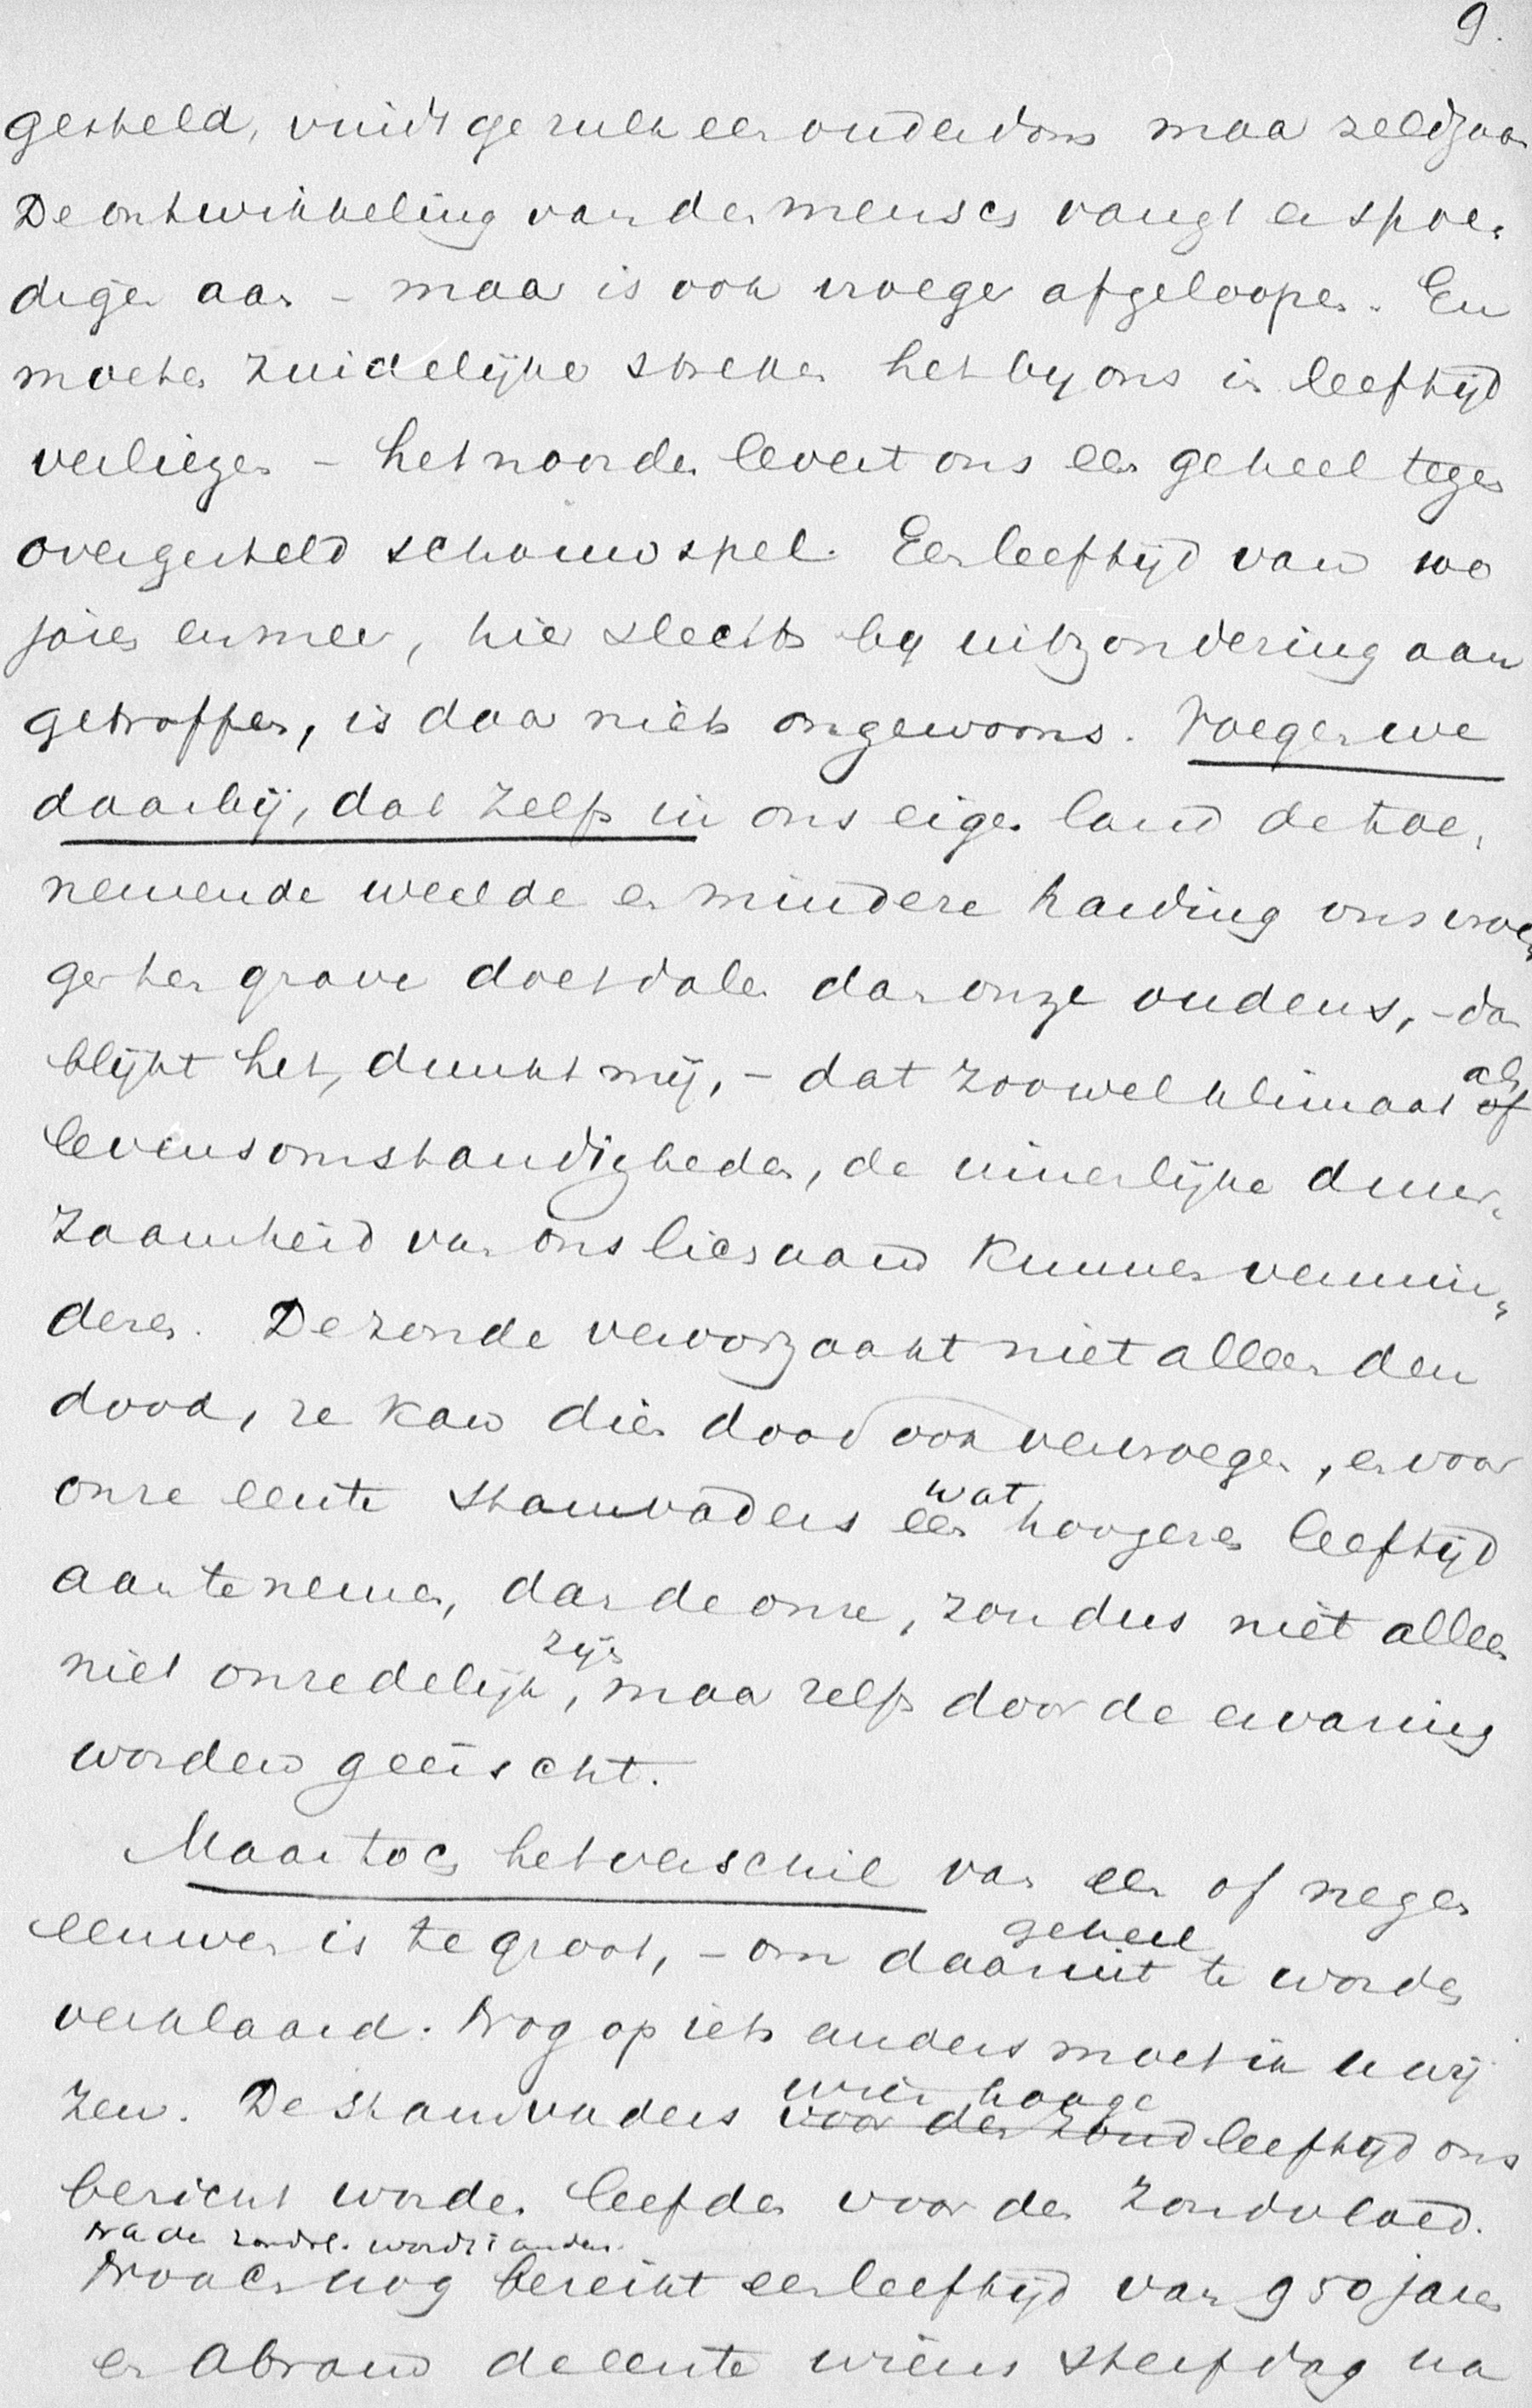 9.
gesteld, vindt ge zulk een ouderdom maar zeldzaam
De ontwikkeling van den mensch vangt er spoe-
diger aan – maar is ook vroeger afgeloopen. En
moeten zuidelijke streken het by ons in leeftijd
verliezen – het noorden levert ons een geheel tegen
overgesteld schouwspel. Een leeftijd van 100
jaren en meer, hier slechts by uitzondering aan
getroffen, is daar niets ongewoons. Voegen we
daarbij, dat zelfs in ons eigen land de toe-
nemende weelde en mindere harding ons vroe-
ger ten grave doet dalen dan onze ouders, – dan
blijkt het, dunkt mij, – dat zoowel klimaat als of
levensomstandigheden, de innerlijke duur-
zaamheid van ons lichaam kunnen vermin-
deren. De zonde veroorzaakt niet alleen den
dood, ze kan dien dood ook vervroegen, en voor
onze eerste stamvaders een wat hoogeren leeftijd
aan te nemen, dan de onze, zou dus niet alleen
niet onredelijk zijn, maar zelfs door de ervaring
worden geëischt.
Maar toch het verschil van een of negen
eeuwen is te groot, – om daaruit geheel te worden
verklaard. Nog op iets anders moet ik u wij
zen. De stamvaders voor den zond wier hooge leeftijd ons
bericht worden leefden voor den zondvloed.
Na den zondvl. wordt 't anders.
Noach nog bereikt een leeftijd van 950 jaren
en Abram de eerste wiens sterfdag na